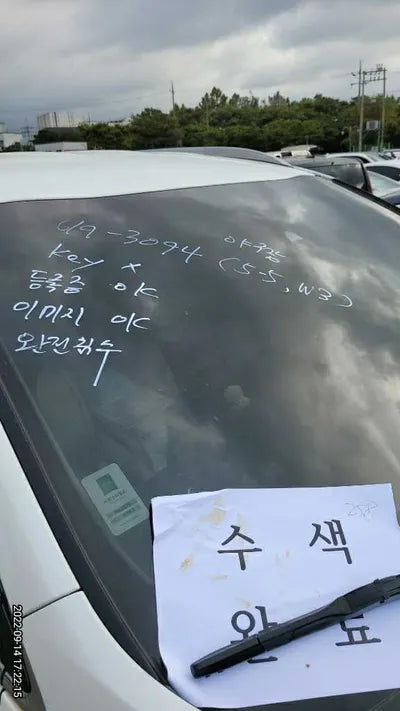 야구장
Key x (5-5, W3)
등록증 OK
이미지 OK
완전침수
수 색
완 료
2022-09-14 17:22:15